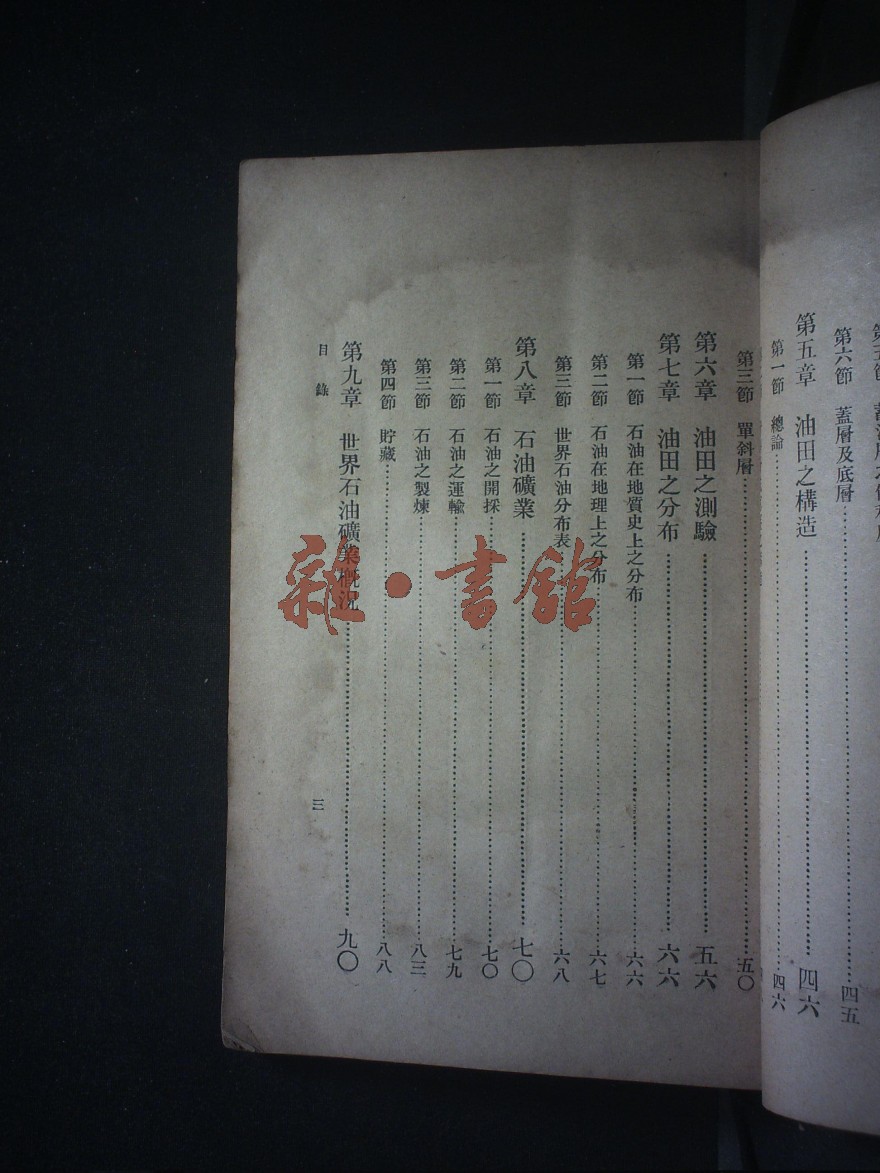 第六節　蓋層及底層……四五
第五章　油田之構造……四六
第一節　總論……四六
第三節　單斜層……五〇
第六章　油田之測驗……五六
第七章　油田之分布……六六
第一節　石油在地質史上之分布……六六
第二節　石油在地理上之分布……六七
第三節　世界石油分布表……六八
第八章　石油礦業……七〇
第一節　石油之開採……七〇
第二節　石油之運輸……七九
第三節　石油之製煉……八三
第四節　貯藏……八八
第九章　世界石油礦業概況……九〇
目錄　三
雜·書館